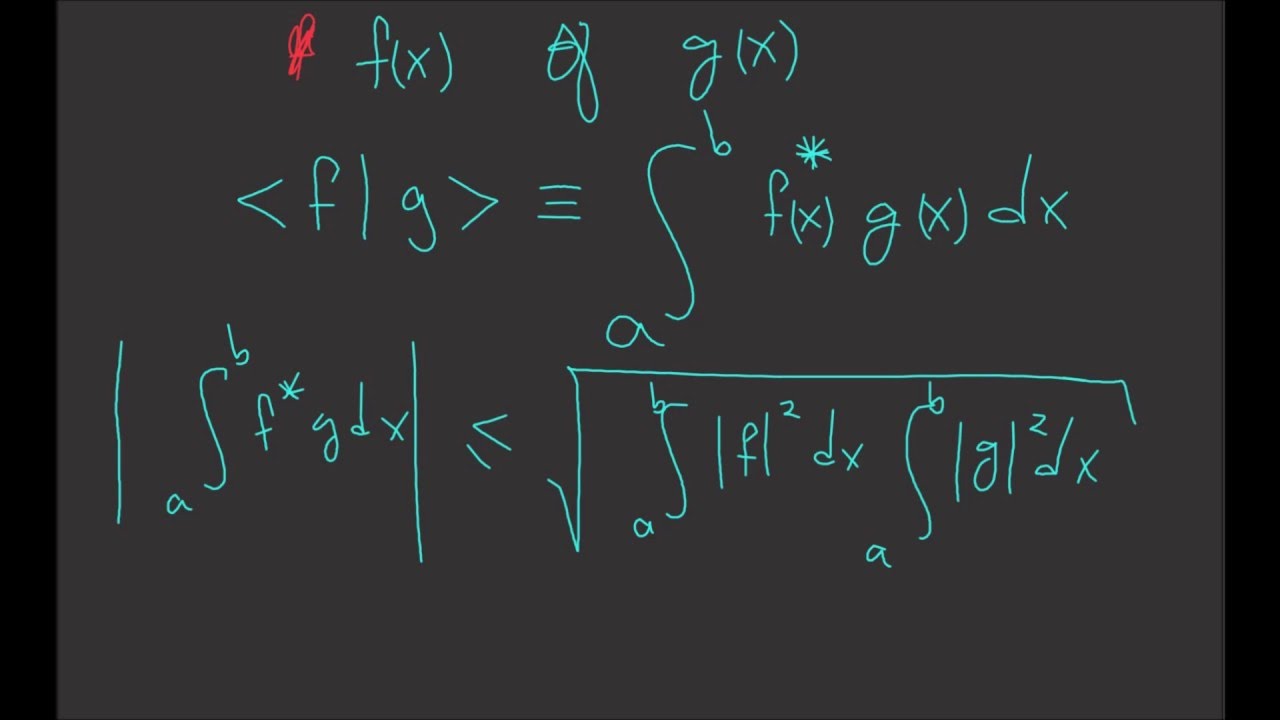 f(x) g(x)
<f|g> ≡ ∫_a^b f*(x) g(x) dx
|∫_a^b f* g dx| ≤ √(∫_a^b |f|² dx ∫_a^b |g|² dx)